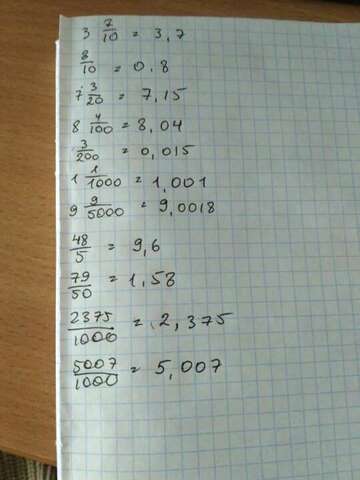 3 7/10 = 3,7
8/10 = 0,8
7 3/20 = 7,15
8 4/100 = 8,04
3/200 = 0,015
1 1/1000 = 1,001
9 9/5000 = 9,0018
48/5 = 9,6
79/50 = 1,58
2375/1000 = 2,375
5007/1000 = 5,007